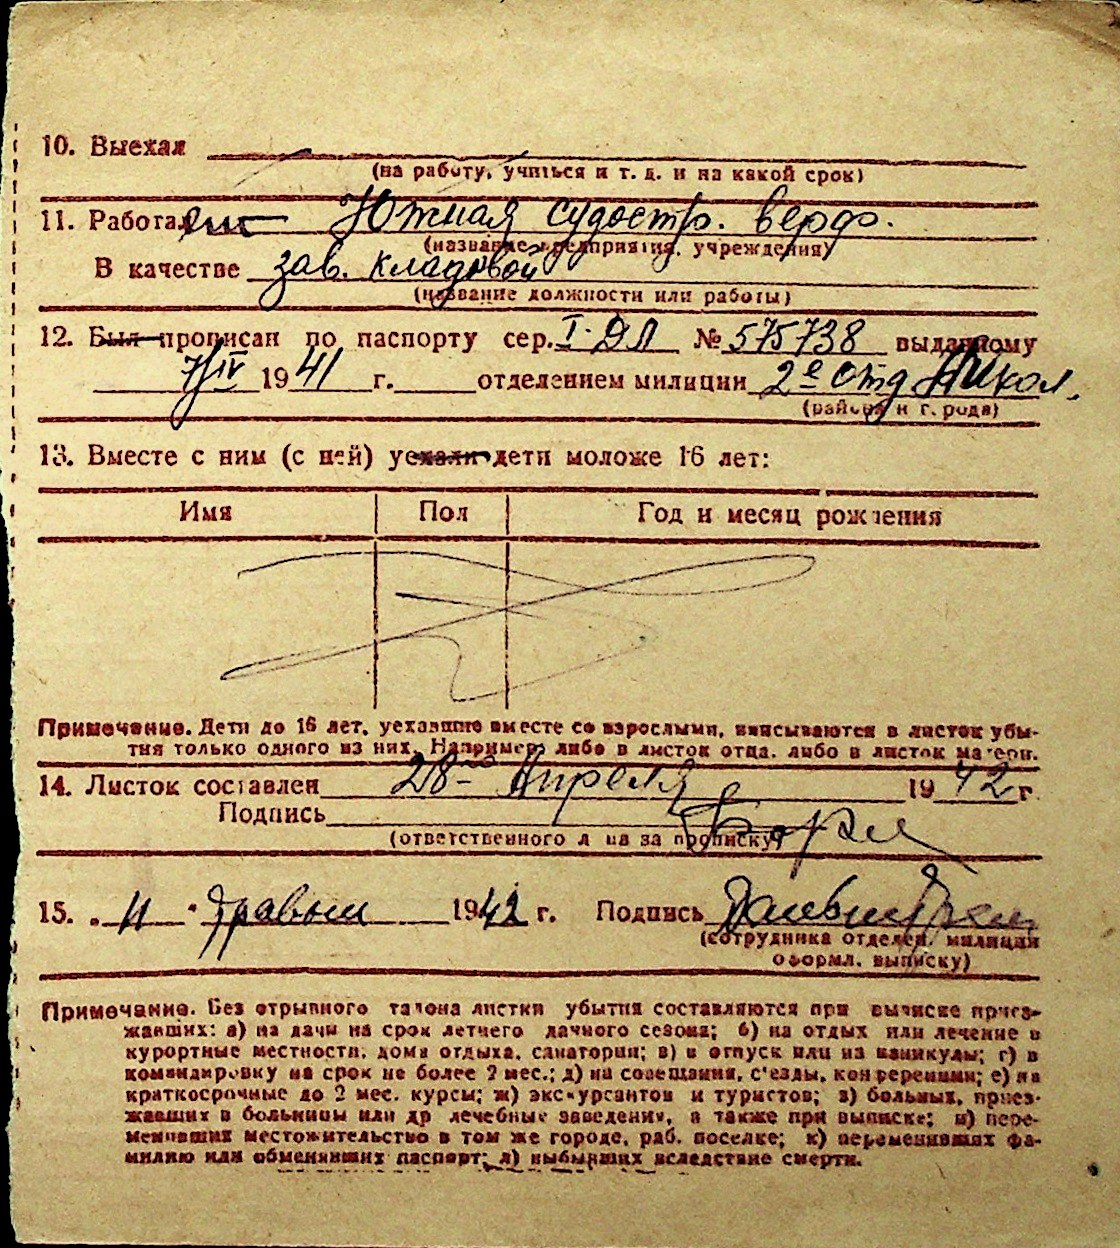 10. Выехал
(на работу, учиться и т. д. и на какой срок)
11. Работает Южная судостр. верфь.
(название предприятия, учреждения)
В качестве зав. кладовой
(название должности или работы)
12. Был прописан по паспорту сер. I-ДЛ № 575738 выданному
7/IV 1941 г. отделением милиции 2е отд Никол.
(района и города)
13. Вместе с ним (с ней) уехали дети моложе 16 лет:
Имя Пол Год и месяц рождения
Примечание. Дети до 16 лет, уехавшие вместе со взрослыми, вписываются в листок убы-
тия только одного из них. Например, либо в листок отца, либо в листок матери.
14. Листок составлен 28-го Апреля 1942 г
Подпись
(ответственного лица за прописку)
15. „11" травня 1942 г. Подпись
(сотрудника отделен. милиции
оформл. выписку)
Примечание. Без отрывного талона листки убытия составляются при выписке приез-
жавших: а) на дачи на срок летнего дачного сезона; б) на отдых или лечение в
курортные местности, дома отдыха, санатории; в) в отпуск или на каникулы; г) в
командировку на срок не более 2 мес.; д) на совещания, с'езды, конференции; е) на
краткосрочные до 2 мес. курсы; ж) экскурсантов и туристов; з) больных, приез-
жавших в больницы или др лечебные заведения, а также при выписке; и) пере-
менивших местожительство в том же городе, раб. поселке; к) переменивших фа-
милию или обменявших паспорт; л) выбывших вследствие смерти.